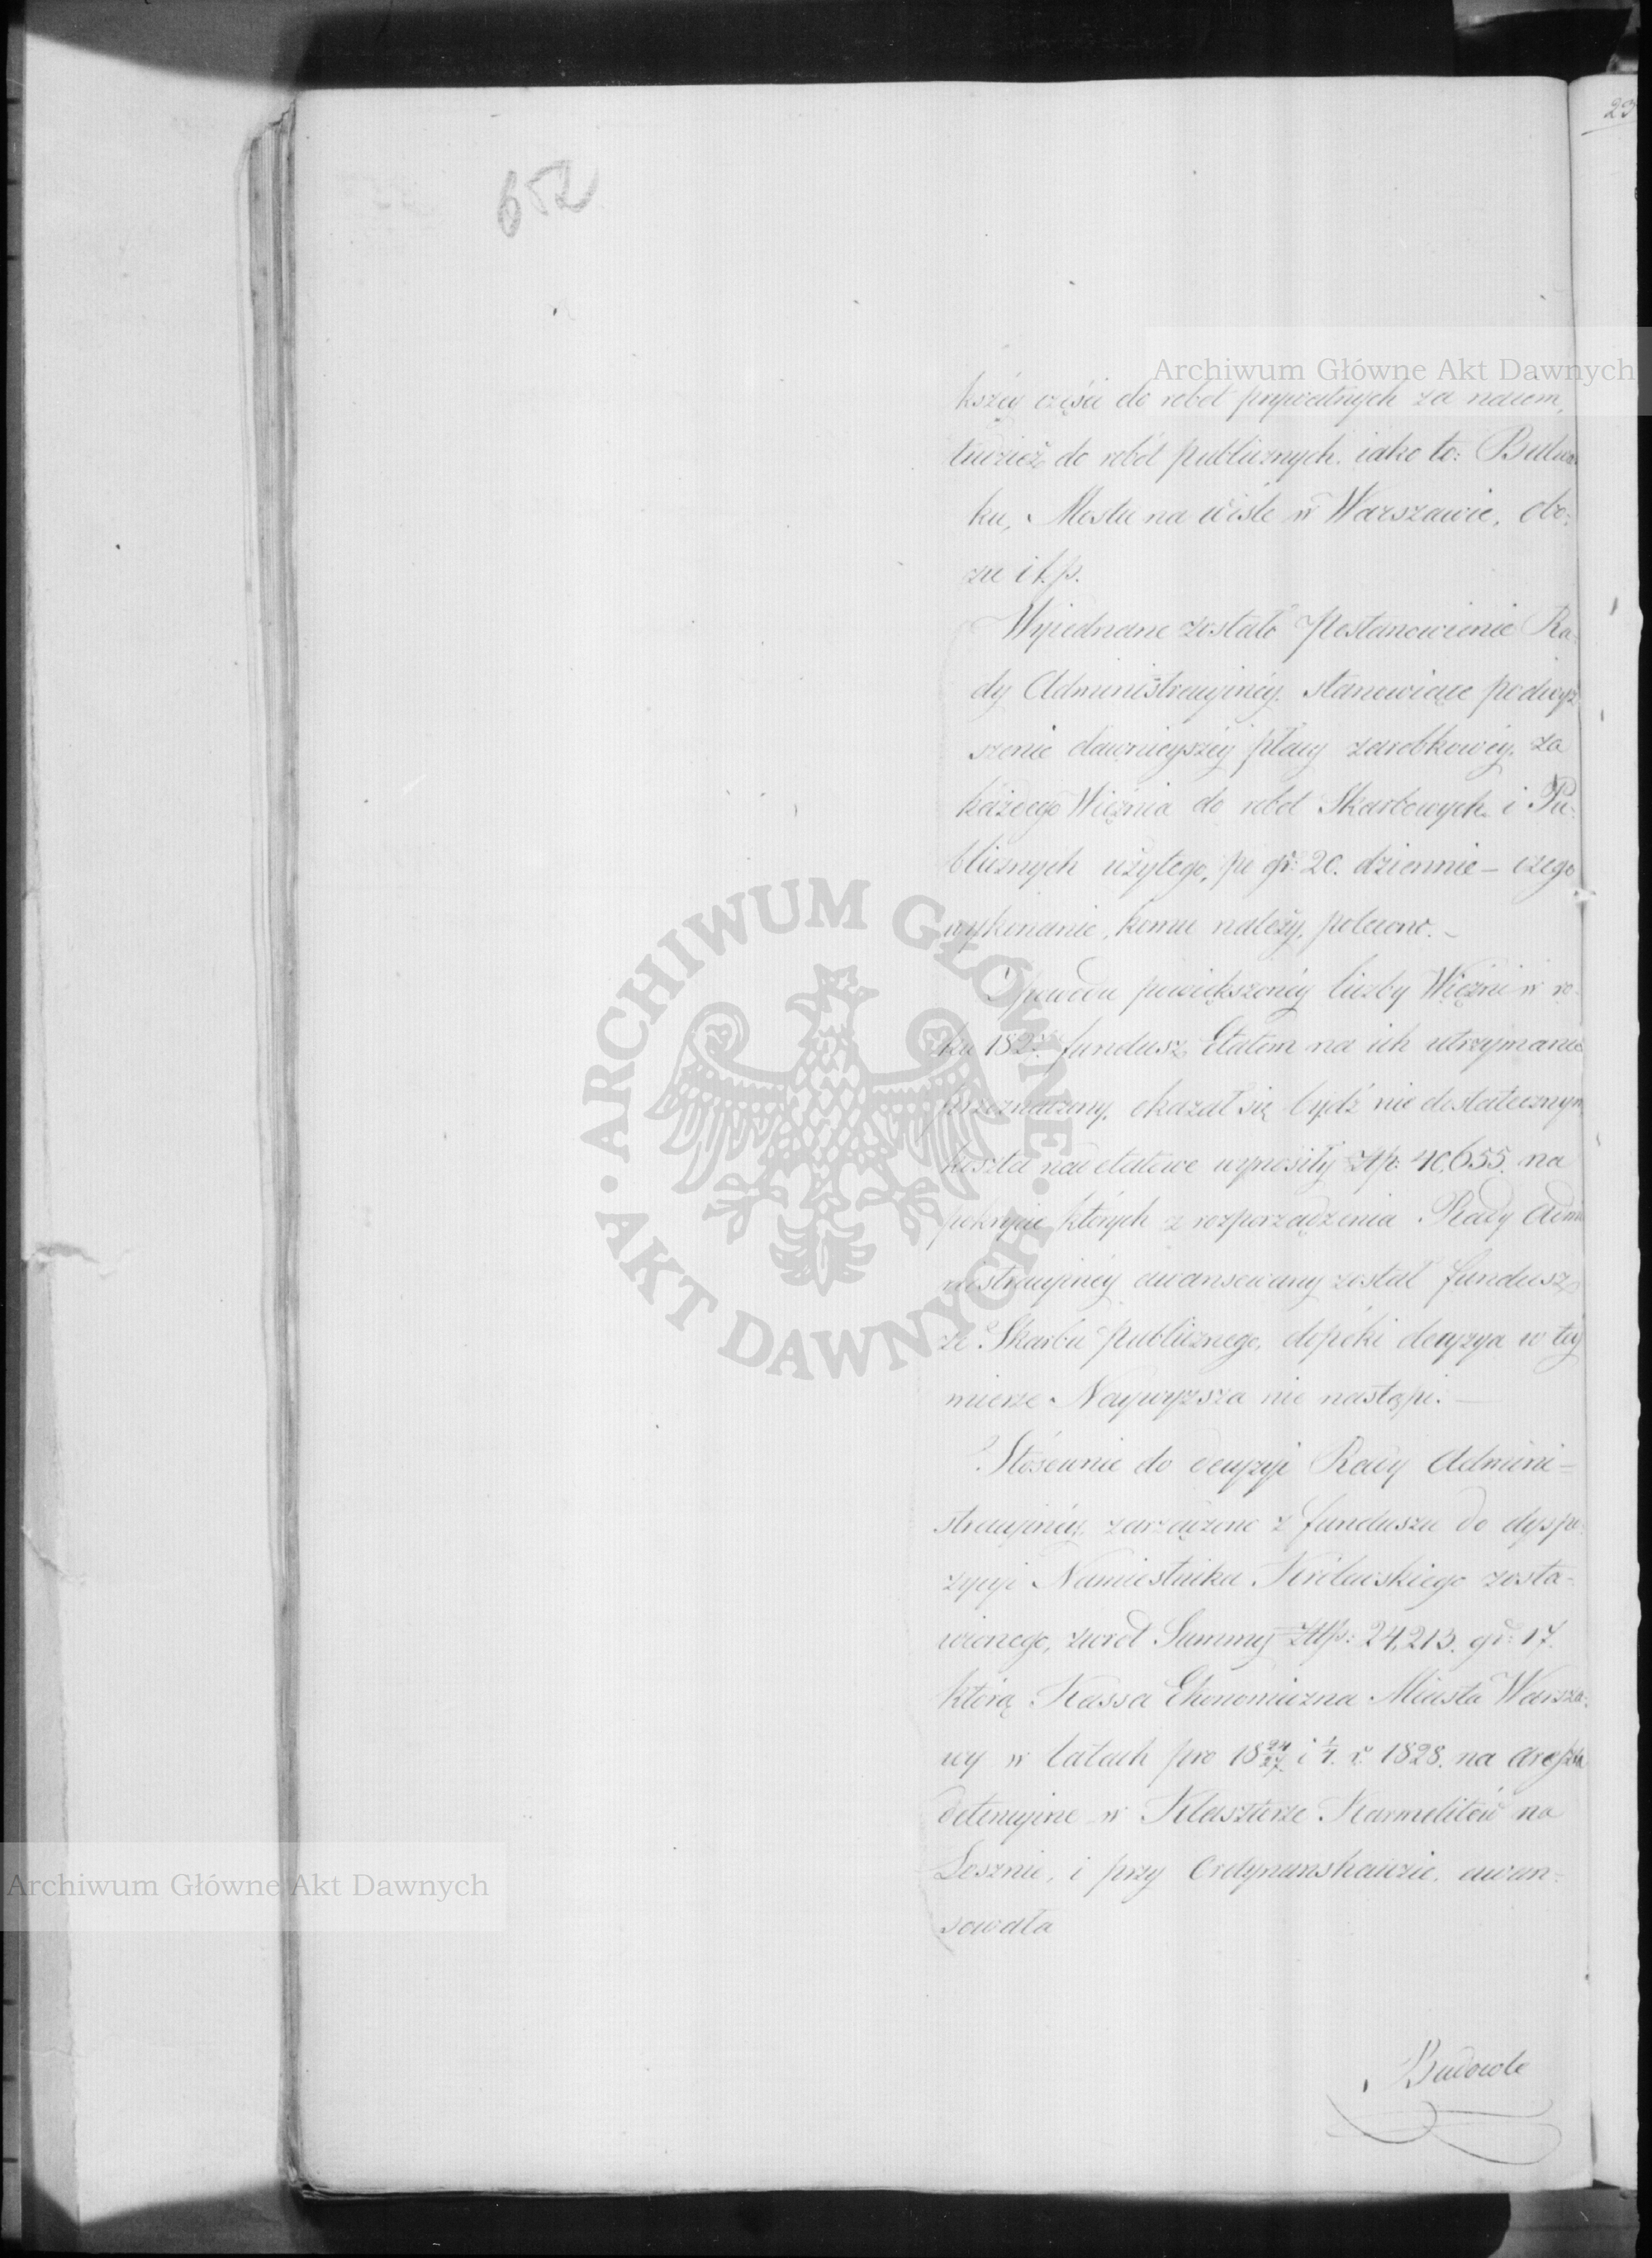 23
652
kszéy części do robót prywatnych za naiem,
tudzież do robót publicznych, iako to: Bulwar
ku, Mostu na Wiśle w Warszawie, obo-
zu i t. p.
Wyiednane zostało Postanowienie Ra-
dy Administracyinéy, stanowiące podwyż
szenie dawnieyszéy płacy zarobkowéy, za
każdego Więźnia do robót Skarbowych i Pu-
blicznych użytego, po gr: 20. dziennie – czego
wykonanie, komu należy, polecono. –
Z powodu powiększonéy liczby Więźni w ro-
ku fundusz Etatem na ich utrzymanie
przeznaczony, okazał się bydź nie dostatecznym
koszta nad etatowe wynosiły Złp: 40,655. na
pokrycie których z rozporządzenia Rady Admi
nistracyinéy awansowany został fundusz
ze Skarbu Publicznego, dopóki decyzya w téy
mierze Naywyższa nie nastąpi. —
Stósownie do decyzyi Rady Admini=
stracyinéy, zarządzono z funduszu do dyspo-
zycyi Namiestnika Królewskiego zosta-
wionego, zwrot Summy Złp: 24,213. gr: 17.
którą Kassa Ekonomiczna Miasta Warsza-
wy w latach pro 18 24/27 i 1/4. r. 1828. na areszta
detencyine w Klasztorze Karmelitów na
Lesznie, i przy Ordynanshauzie, awan-
sowała
Budowle
Archiwum Główne Akt Dawnych
ARCHIWUM GŁÓWNE · AKT DAWNYCH ·
Archiwum Główne Akt Dawnych